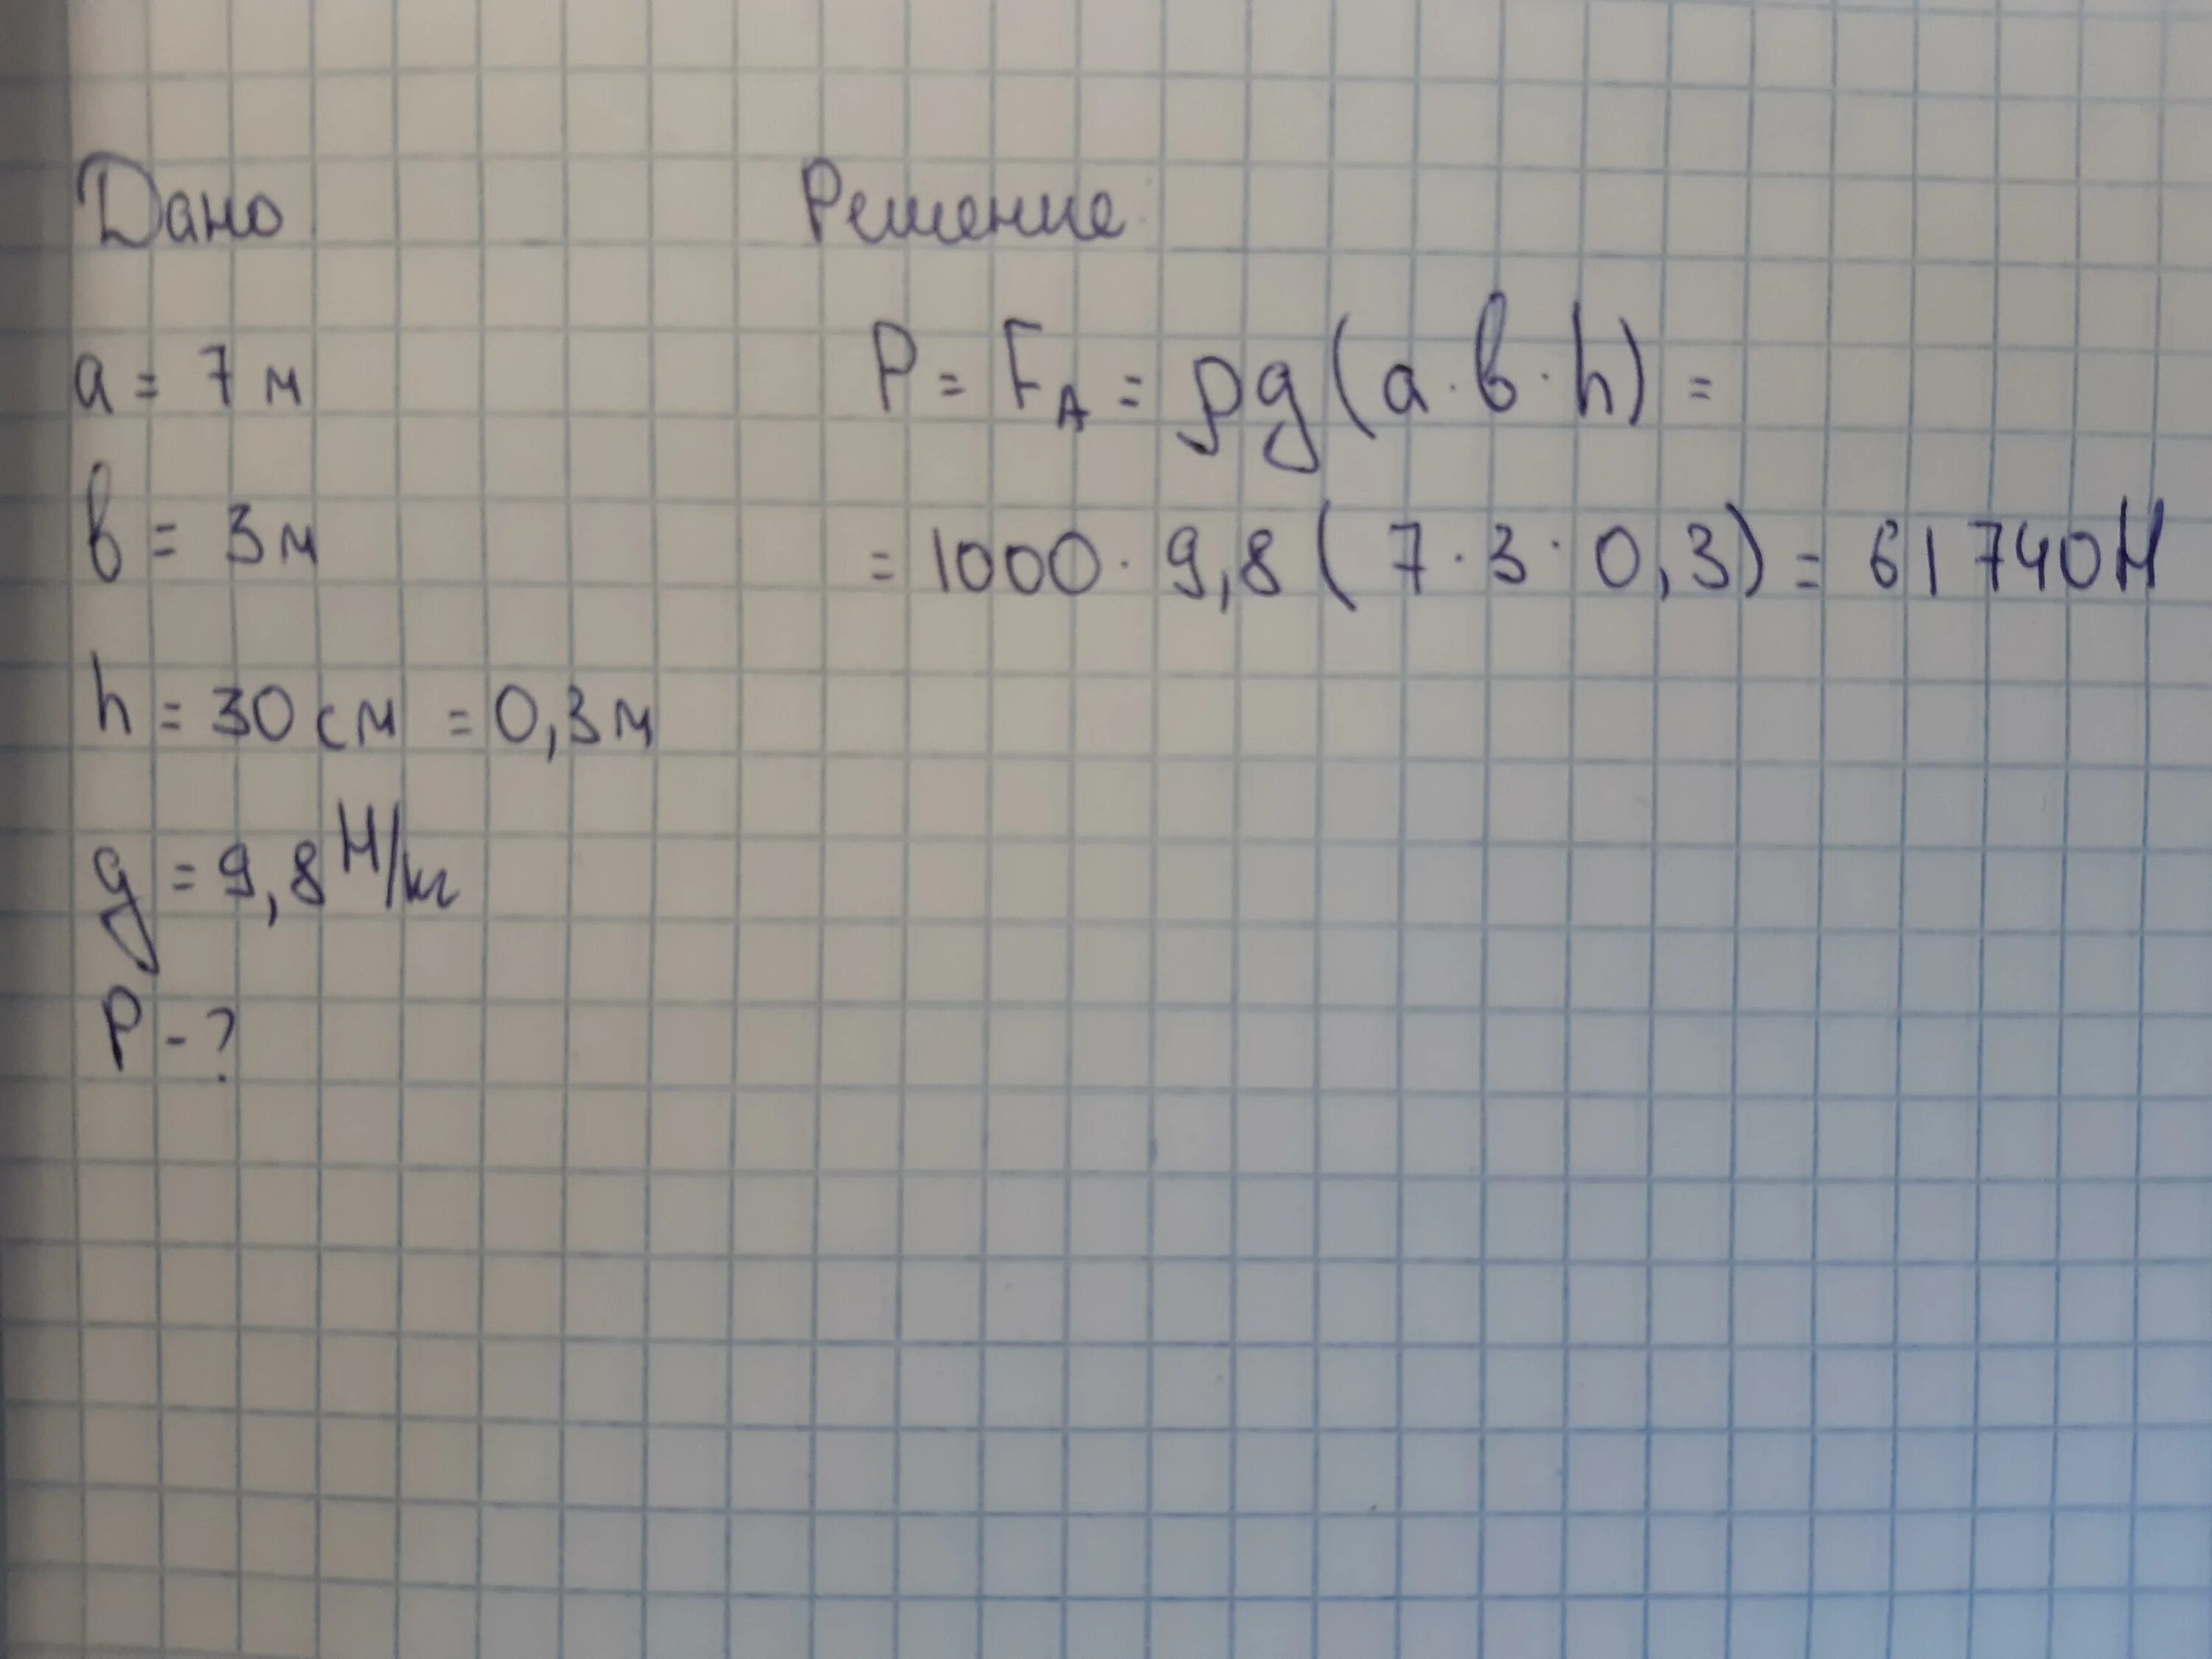 Дано
a = 7 м
в = 3 м
h = 30 см = 0,3 м
g = 9,8 Н/кг
P - ?
Решение
P = F_A = ρg(a·в·h) =
= 1000 · 9,8 ( 7 · 3 · 0,3) = 61740Н